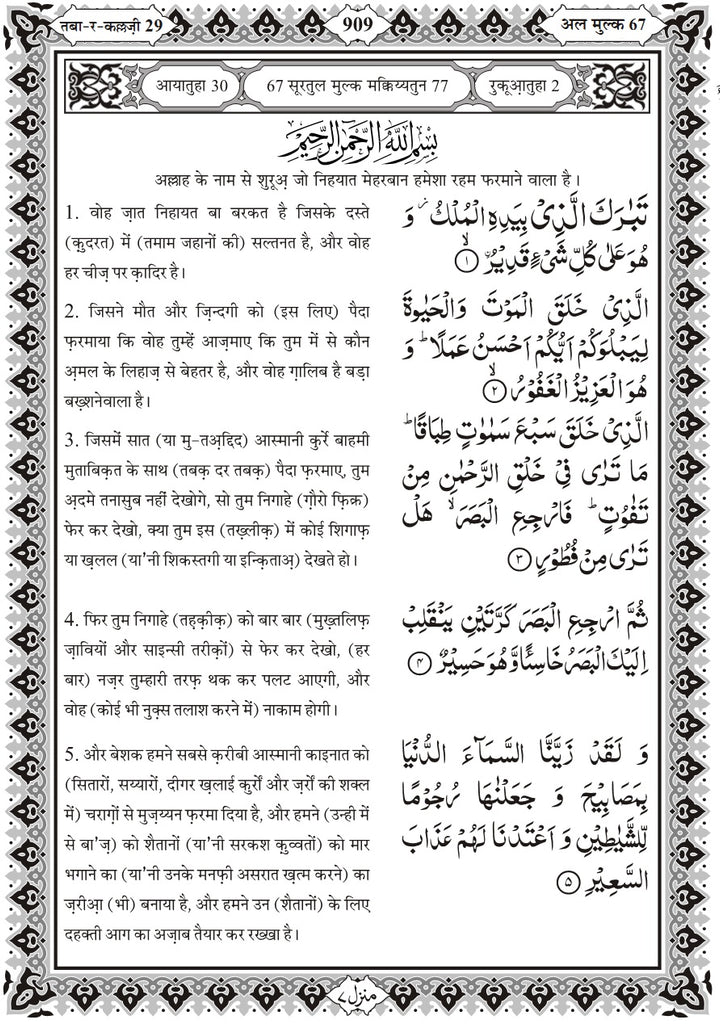 तबा-र-कल्लज़ी 29
909
अल मुल्क 67
आयातुहा 30
67 सूरतुल मुल्क मक्किय्यतुन 77
रुकूआ़तुहा 2
بِسْمِ اللّٰهِ الرَّحْمٰنِ الرَّحِيْمِ
अल्लाह के नाम से शुरूअ़ जो निहयात मेहरबान हमेशा रहम फरमाने वाला है।
1. वोह ज़ात निहायत बा बरकत है जिसके दस्ते
(क़ुदरत) में (तमाम जहानों की) सल्तनत है, और वोह
हर चीज़ पर क़ादिर है।
تَبٰرَكَ الَّذِيْ بِيَدِهِ الْمُلْكُ ۫ وَ
هُوَ عَلٰى كُلِّ شَيْءٍ قَدِيْرُۨ ۙ﴿۱﴾
2. जिसने मौत और ज़िन्दगी को (इस लिए) पैदा
फ़रमाया कि वोह तुम्हें आज़माए कि तुम में से कौन
अ़मल के लिहाज़ से बेहतर है, और वोह ग़ालिब है बड़ा
बख़्शनेवाला है।
الَّذِيْ خَلَقَ الْمَوْتَ وَالْحَيٰوةَ
لِيَبْلُوَكُمْ اَيُّكُمْ اَحْسَنُ عَمَلًا ؕ وَ
هُوَ الْعَزِيْزُ الْغَفُوْرُ ۙ﴿۲﴾
3. जिसमें सात (या मु-तअ़द्दिद) आस्मानी कुर्रे बाहमी
मुताबिक़त के साथ (तबक़ दर तबक़) पैदा फ़रमाए, तुम
अ़दमे तनासुब नहीं देखोगे, सो तुम निगाहे (ग़ौरो फ़िक्र)
फेर कर देखो, क्या तुम इस (तख़्लीक़) में कोई शिगाफ़
या ख़लल (या'नी शिकस्तगी या इन्क़िताअ़) देखते हो।
الَّذِيْ خَلَقَ سَبْعَ سَمٰوٰتٍ طِبَاقًا ؕ
مَا تَرٰى فِيْ خَلْقِ الرَّحْمٰنِ مِنْ
تَفٰوُتٍ ؕ فَارْجِعِ الْبَصَرَ ۙ هَلْ
تَرٰى مِنْ فُطُوْرٍ ﴿۳﴾
4. फिर तुम निगाहे (तह़क़ीक़) को बार बार (मुख़्तलिफ़
ज़ावियों और साइन्सी तरीक़ों) से फेर कर देखो, (हर
बार) नज़र तुम्हारी तरफ़ थक कर पलट आएगी, और
वोह (कोई भी नुक़्स तलाश करने में) नाकाम होगी।
ثُمَّ ارْجِعِ الْبَصَرَ كَرَّتَيْنِ يَنْقَلِبْ
اِلَيْكَ الْبَصَرُ خَاسِئًا وَّهُوَ حَسِيْرٌ ﴿۴﴾
5. और बेशक हमने सबसे क़रीबी आस्मानी काइनात को
(सितारों, सय्यारों, दीगर ख़लाई कुर्रों और ज़र्रों की शक्ल
में) चराग़ों से मुज़य्यन फ़रमा दिया है, और हमने (उन्ही में
से बा'ज़) को शैतानों (या'नी सरकश क़ुव्वतों) को मार
भगाने का (या'नी उनके मनफ़ी असरात ख़त्म करने) का
ज़रीआ़ (भी) बनाया है, और हमने उन (शैतानों) के लिए
दहक्ती आग का अज़ाब तैयार कर रख्खा है।
وَ لَقَدْ زَيَّنَّا السَّمَآءَ الدُّنْيَا
بِمَصَابِيْحَ وَ جَعَلْنٰهَا رُجُوْمًا
لِّلشَّيٰطِيْنِ وَ اَعْتَدْنَا لَهُمْ عَذَابَ
السَّعِيْرِ ﴿۵﴾
منزل ۷